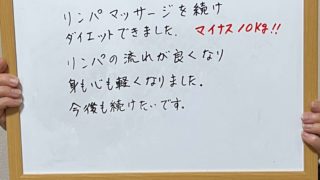 リンパマッサージを続け
ダイエットできました。マイナス10kg!!
リンパの流れが良くなり
身も心も軽くなりました。
今後も続けたいです。